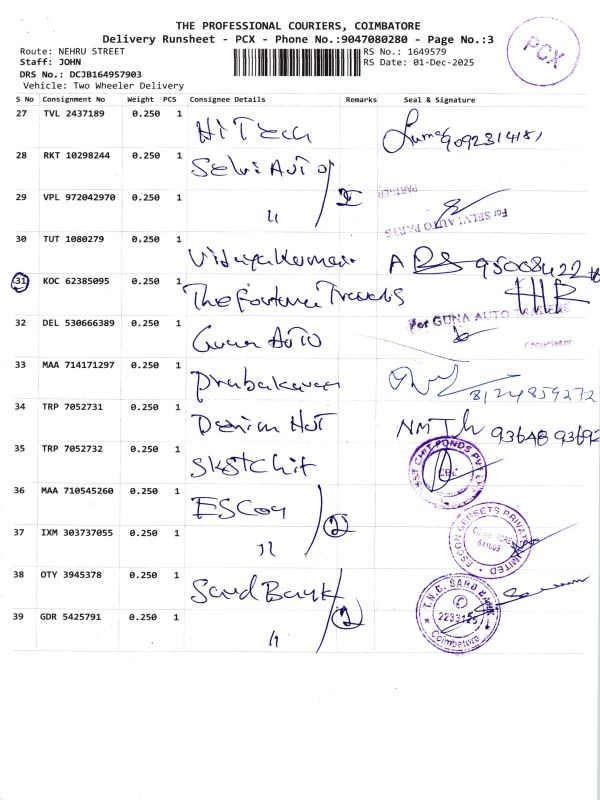 THE PROFESSIONAL COURIERS, COIMBATORE
Delivery Runsheet - PCX - Phone No.:9047080280 - Page No.:3
PCX
Route: NEHRU STREET
RS No.: 1649579
Staff: JOHN
RS Date: 01-Dec-2025
DRS No.: DCJB164957903
Vehicle: Two Wheeler Delivery
S No Consignment No Weight PCS Consignee Details Remarks Seal & Signature
27 TVL 2437189 0.250 1 Hi Tech 9092314151
28 RKT 10298244 0.250 1 Selvi Auto
29 VPL 972042970 0.250 1 " 2 For SELVI AUTO PARTS PARTNER
30 TUT 1080279 0.250 1 Vidhyakumar
31 KOC 62385095 0.250 1 The Fortune Travels
32 DEL 530666389 0.250 1 Guna Auto For GUNA AUTO TRADERS
33 MAA 714171297 0.250 1 Prabakaran 8124859272
34 TRP 7052731 0.250 1 Denim Hut
35 TRP 7052732 0.250 1 SKST Chit
36 MAA 710545260 0.250 1 ESCON
37 IXM 303737055 0.250 1 " 2 ESCON GENSETS PRIVATE LIMITED 641009
38 OTY 3945378 0.250 1 Sard Bank
39 GDR 5425791 0.250 1 " 2 T.N.C. SARD BANK Coimbatore